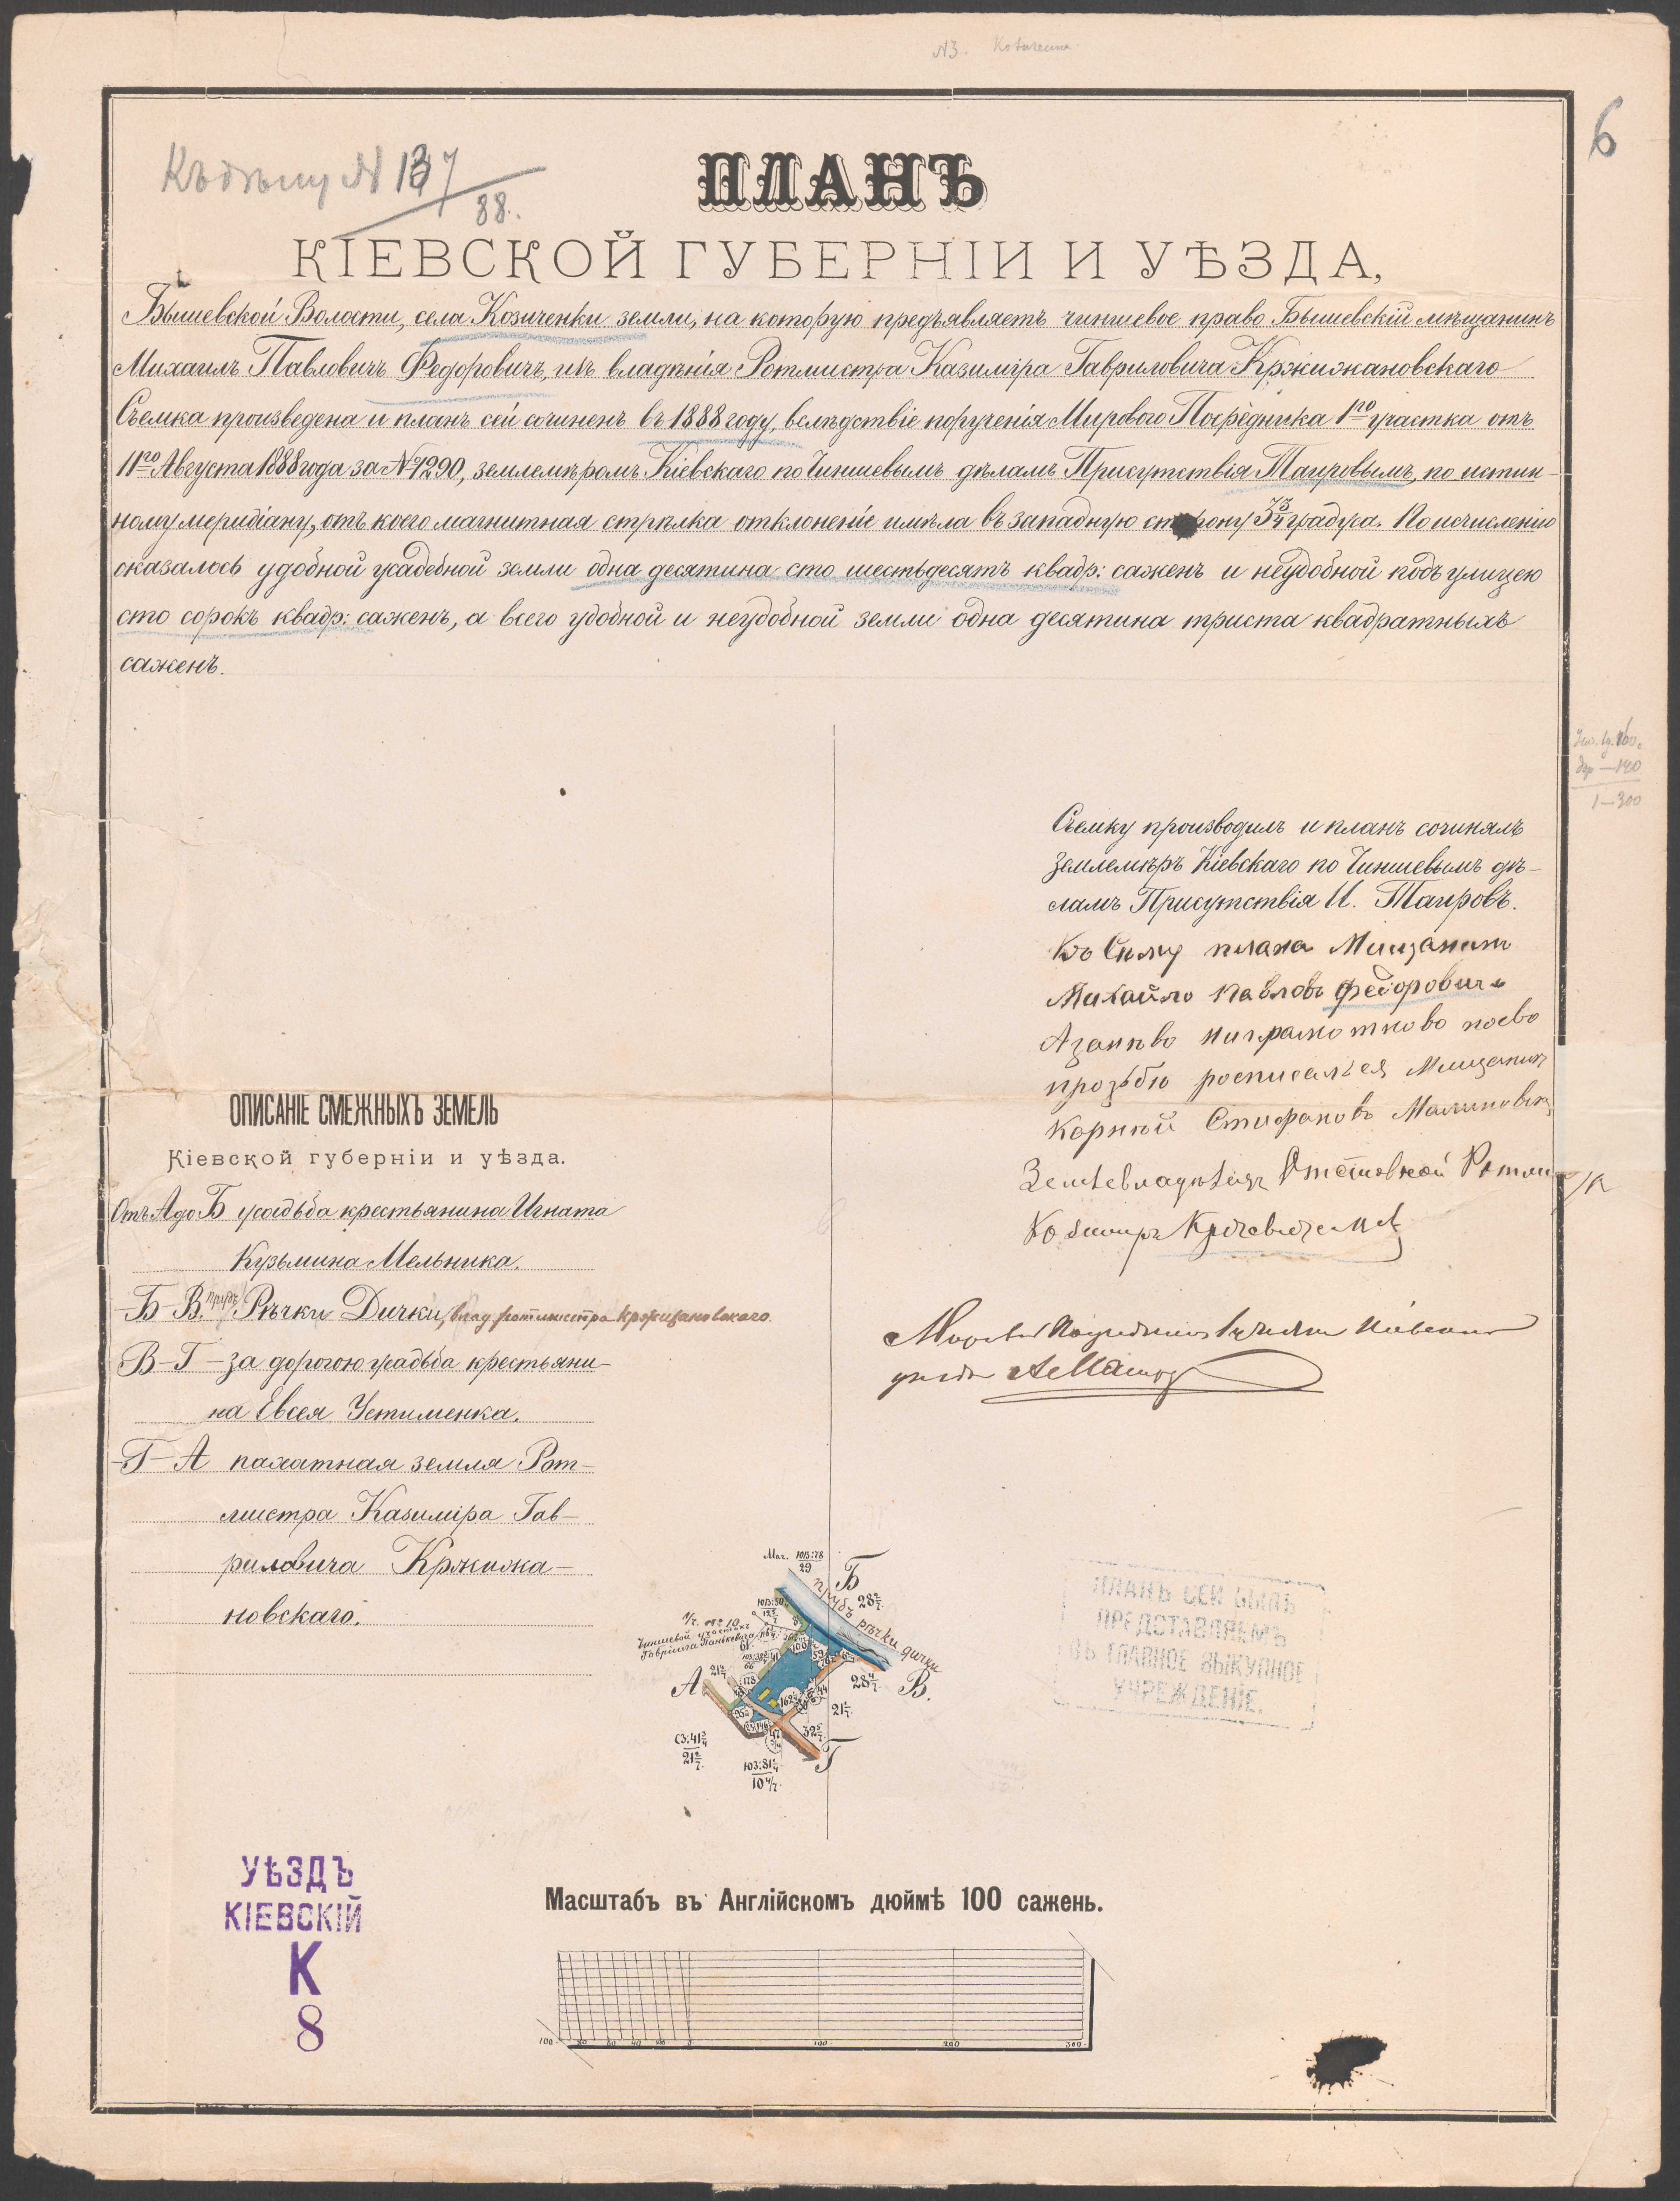 N3.
6
Къ дѣлу N 137/88.
ПЛАНЪ
КІЕВСКОЙ ГУБЕРНІИ И УѢЗДА,
Бышевской Волости, села Козиченки земли, на которую предъявляетъ чиншевое право Бышевскій мѣщанинъ
Михаилъ Павловичъ Федоровичъ, изъ владѣнія Ротмистра Казиміра Гавриловича Кржижановскаго
Съемка произведена и планъ сей сочиненъ въ 1888 году, вслѣдствіе порученія Мироваго Посредника 1го участка отъ
11го Августа 1888 года за №1290, землемѣромъ Кіевскаго по Чиншевымъ дѣламъ Присутствія Таировымъ, по истин-
ному меридіану, отъ коего магнитная стрѣлка отклоненіе имѣла въ западную сторону 3¾ градуса. По исчисленію
оказалось удобной усадебной земли одна десятина сто шестьдесятъ квадр: саженъ и неудобной подъ улицею
сто сорокъ квадр: саженъ, а всего удобной и неудобной земли одна десятина триста квадратныхъ
саженъ.
1—300
Съемку производилъ и планъ сочинялъ
Землемѣръ Кіевскаго по Чиншевымъ дѣ-
ламъ Присутствія И. Таировъ.
Къ Сему плана Мищанинъ
Михайло Павловъ Федоровичъ
Азанѣво ниграмотново поево
прозьбю росписалься Мищанинъ
Корнѣй Стифановъ
Землевладѣлецъ Отставной
ОПИСАНІЕ СМЕЖНЫХЪ ЗЕМЕЛЬ
Кіевской губерніи и уѣзда.
Отъ А до Б усадьба крестьянина Игната
Кузьмина Мельника.
Б-В. прудъ Рѣчки Дички, влад ротмистра Кржижановскаго
В-Г — за дорогою усадьба крестьяни-
на Евсея Устименка.
Г-А пахатная земля Рот-
мистра Казиміра Гав-
риловича Кржижа-
новскаго.
Маг. ЮВ:78
29
Б
28 2/7
прудъ рѣчки дички
Чиншевой участокъ
А
21 4/7
28 4/7
В.
21 2/7
32 5/7
Г
СЗ:41 3/4
21 2/7
ЮЗ:81 1/4
10 4/7
ПЛАНЪ СЕЙ БЫЛЪ
ПРЕДСТАВЛЯЕМЪ
ВЪ ГЛАВНОЕ ВЫКУПНОЕ
УЧРЕЖДЕНІЕ.
УѢЗДЪ
КІЕВСКІЙ
К
8
Масштабъ въ Англійскомъ дюймѣ 100 сажень.
100 80 60 40 20 0 100 200 300